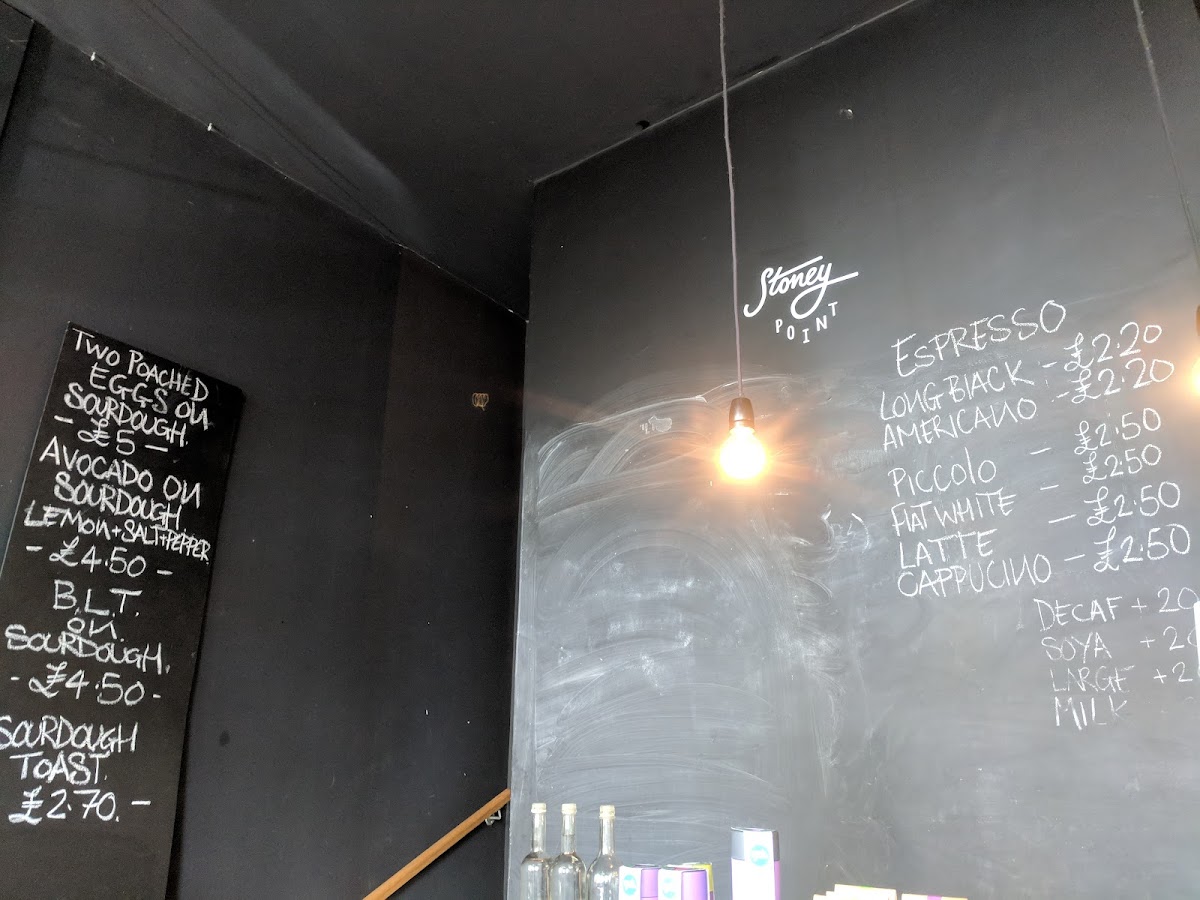 TWO POACHED
EGGS ON
SOURDOUGH.
- £5 -
AVOCADO ON
SOURDOUGH.
LEMON+SALT+PEPPER
- £4.50 -
B.L.T.
ON.
SOURDOUGH.
- £4.50 -
SOURDOUGH
TOAST.
£2.70. -
Stoney
POINT
ESPRESSO
LONG BLACK - £2.20
AMERICANO - £2.20
PICCOLO - £2.50
FLAT WHITE - £2.50
LATTE - £2.50
CAPPUCINO - £2.50
DECAF + 20
SOYA + 20
LARGE + 2
MILK